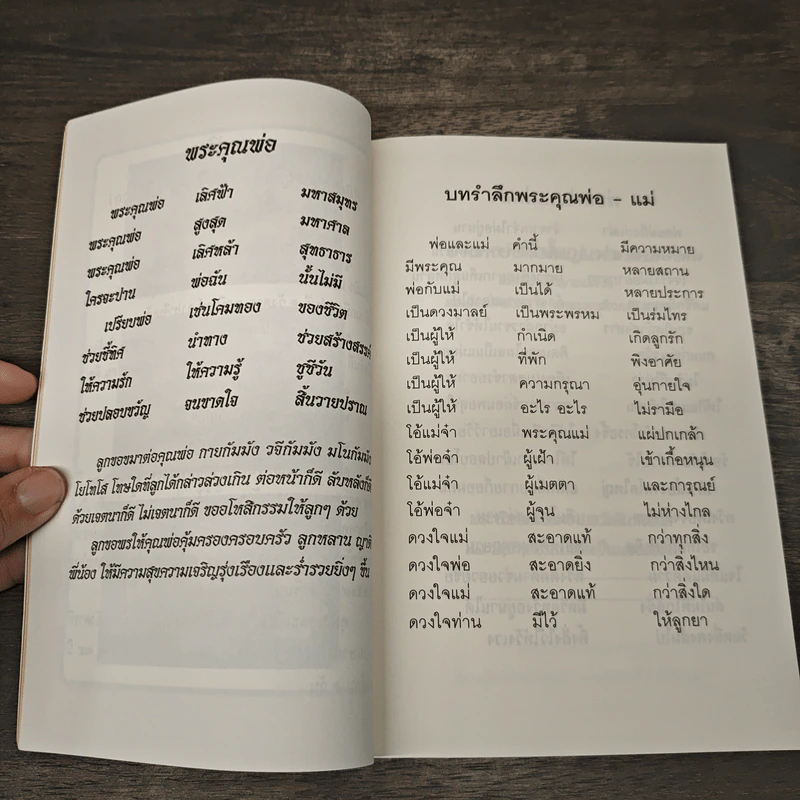 พระคุณพ่อ
พระคุณพ่อ เลิศฟ้า มหาสมุทร
พระคุณพ่อ สูงสุด มหาศาล
พระคุณพ่อ เลิศหล้า สุทธาธาร
ใครจะปาน พ่อฉัน นั้นไม่มี
เปรียบพ่อ เช่นโคมทอง ของชีวิต
ช่วยชี้ทิศ นำทาง ช่วยสร้างสรรค์
ให้ความรัก ให้ความรู้ ชูชีวัน
ช่วยปลอบขวัญ จนขาดใจ สิ้นวายปราณ
ลูกขอขมาต่อคุณพ่อ กายกัมมัง วจีกัมมัง มโนกัมมัง
โยโทโส โทษใดที่ลูกได้กล่าวล่วงเกิน ต่อหน้าก็ดี ลับหลังก็ดี
ด้วยเจตนาก็ดี ไม่เจตนาก็ดี ขออโหสิกรรมให้ลูกๆ ด้วย
ลูกขอพรให้คุณพ่อคุ้มครองครอบครัว ลูกหลาน
พี่น้อง ให้มีความสุขความเจริญรุ่งเรืองและร่ำรวยยิ่งๆ ขึ้น
บทรำลึกพระคุณพ่อ - แม่
พ่อและแม่ คำนี้ มีความหมาย
มีพระคุณ มากมาย หลายสถาน
พ่อกับแม่ เป็นได้ หลายประการ
เป็นดวงมาลย์ เป็นพระพรหม เป็นร่มไทร
เป็นผู้ให้ กำเนิด เกิดลูกรัก
เป็นผู้ให้ ที่พัก พิงอาศัย
เป็นผู้ให้ ความกรุณา อุ่นกายใจ
เป็นผู้ให้ อะไร อะไร ไม่รามือ
โอ้แม่จ๋า พระคุณแม่ แผ่ปกเกล้า
โอ้พ่อจ๋า ผู้เฝ้า เข้าเกื้อหนุน
โอ้แม่จ๋า ผู้เมตตา และการุณย์
โอ้พ่อจ๋า ผู้จุน ไม่ห่างไกล
ดวงใจแม่ สะอาดแท้ กว่าทุกสิ่ง
ดวงใจพ่อ สะอาดยิ่ง กว่าสิ่งไหน
ดวงใจแม่ สะอาดแท้ กว่าสิ่งใด
ดวงใจท่าน มีไว้ ให้ลูกยา